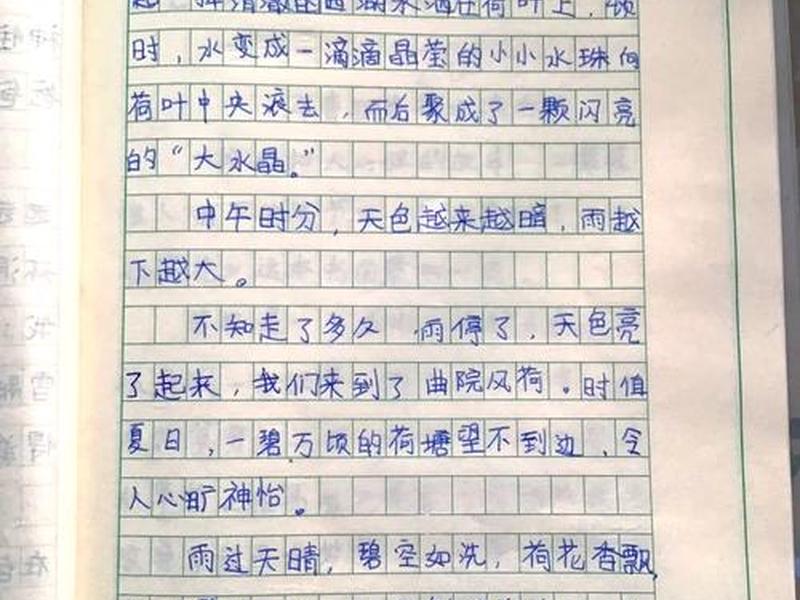 起 将清澈的西湖水洒在荷叶上，顿
时，水变成一滴滴晶莹的小小水珠向
荷叶中央滚去，而后聚成了一颗闪亮
的“大水晶。”
中午时分，天色越来越暗，雨越
下越大。
不知走了多久 雨停了，天色亮
了起来，我们来到了曲院风荷。时值
夏日，一碧万顷的荷塘望不到边，令
人心旷神怡。
雨过天晴，碧空如洗，荷花香飘，